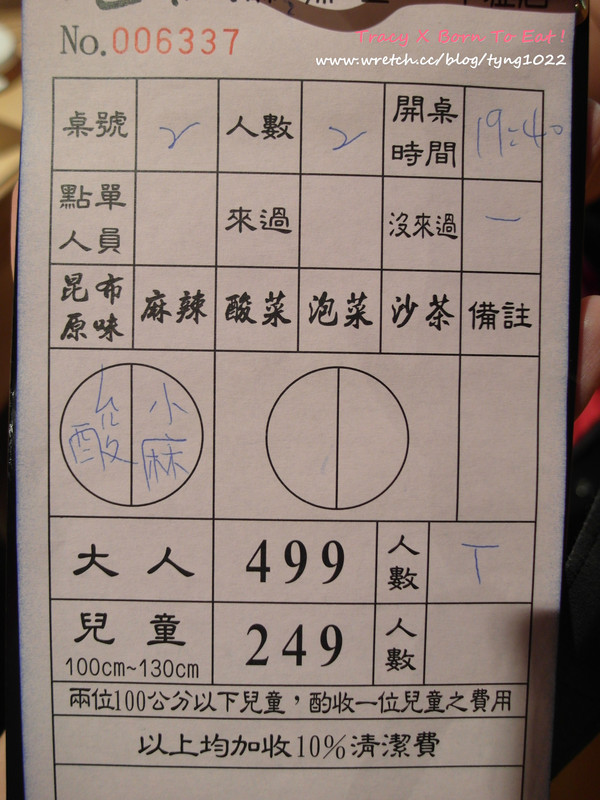 No.006337
Tracy X Born To Eat !
www.wretch.cc/blog/tyng1022
桌號 2 人數 2 開桌時間 19:40
點單人員 來過 沒來過 一
昆布原味 麻辣 酸菜 泡菜 沙茶 備註
酸 小麻
大人 499 人數 T
兒童 100cm~130cm 249 人數
兩位100公分以下兒童，酌收一位兒童之費用
以上均加收10%清潔費